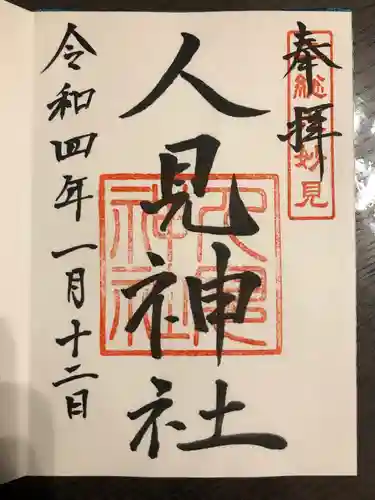 奉拝
総妙見
人見神社
人見神社
令和四年一月十二日